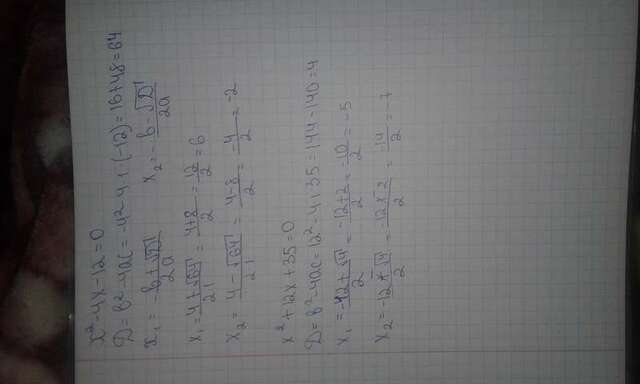 x²-4x-12=0
D=b²-4ac=-4²-4·1·(-12)=16+48=64
x₁=-b+√D/2a x₂=-b-√D/2a
x₁=4+√64/2·1=4+8/2=12/2=6
x₂=4-√64/2·1=4-8/2=-4/2=-2
x²+12x+35=0
D=b²-4ac=12²-4·1·35=144-140=4
x₁=-12+√4/2=-12+2/2=-10/2=-5
x₂=-12-√4/2=-12-2/2=-14/2=-7